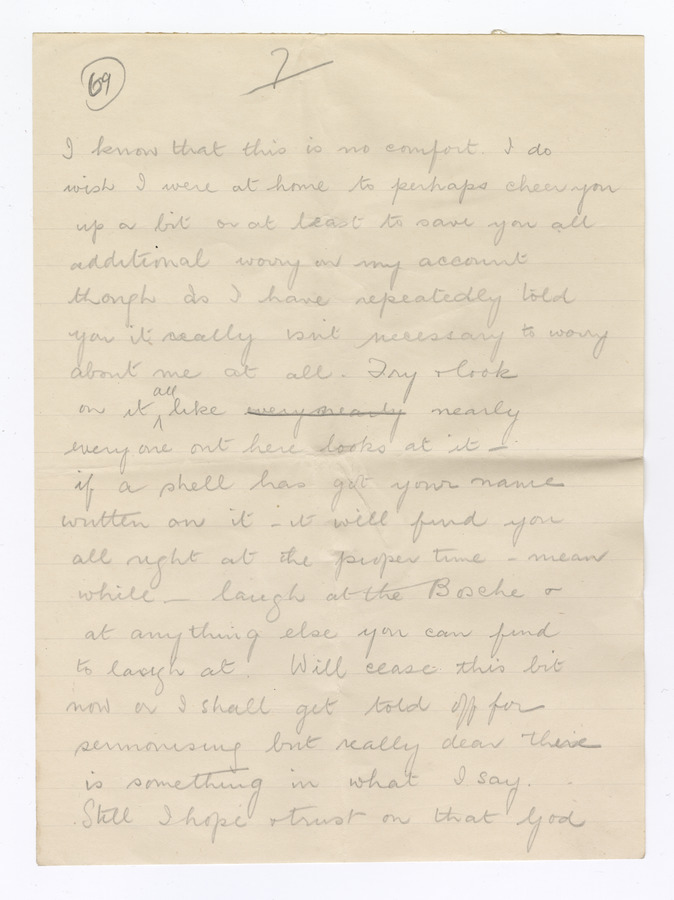 69
7
I know that this is no comfort. I do
wish I were at home to perhaps cheer you
up a bit or at least to save you all
additional worry on my account
though as I have repeatedly told
you it really isn't necessary to worry
about me at all. Try & look
all
on it like every nearly nearly
every one out here looks at it —
if a shell has got your name
written on it - it will find you
all right at the proper time - mean
while — laugh at the Bosche &
at anything else you can find
to laugh at. Will cease this bit
now or I shall get told off for
sermonising but really dear there
is something in what I say.
Still I hope & trust on that God